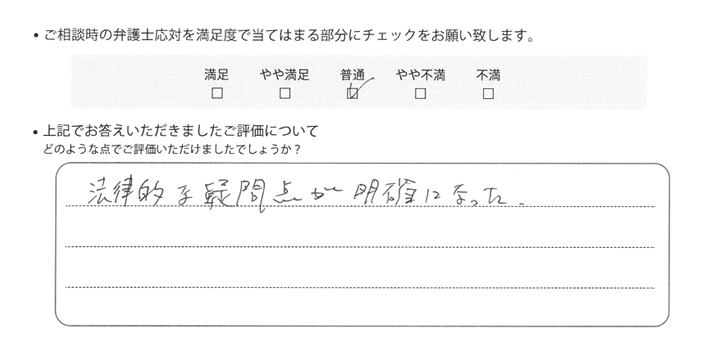 ・ご相談時の弁護士応対を満足度で当てはまる部分にチェックをお願い致します。
満足 やや満足 普通 やや不満 不満
□ □ ☑ □ □
・上記でお答えいただきましたご評価について
どのような点でご評価いただけましたでしょうか？
法律的な疑問点が明確になった.